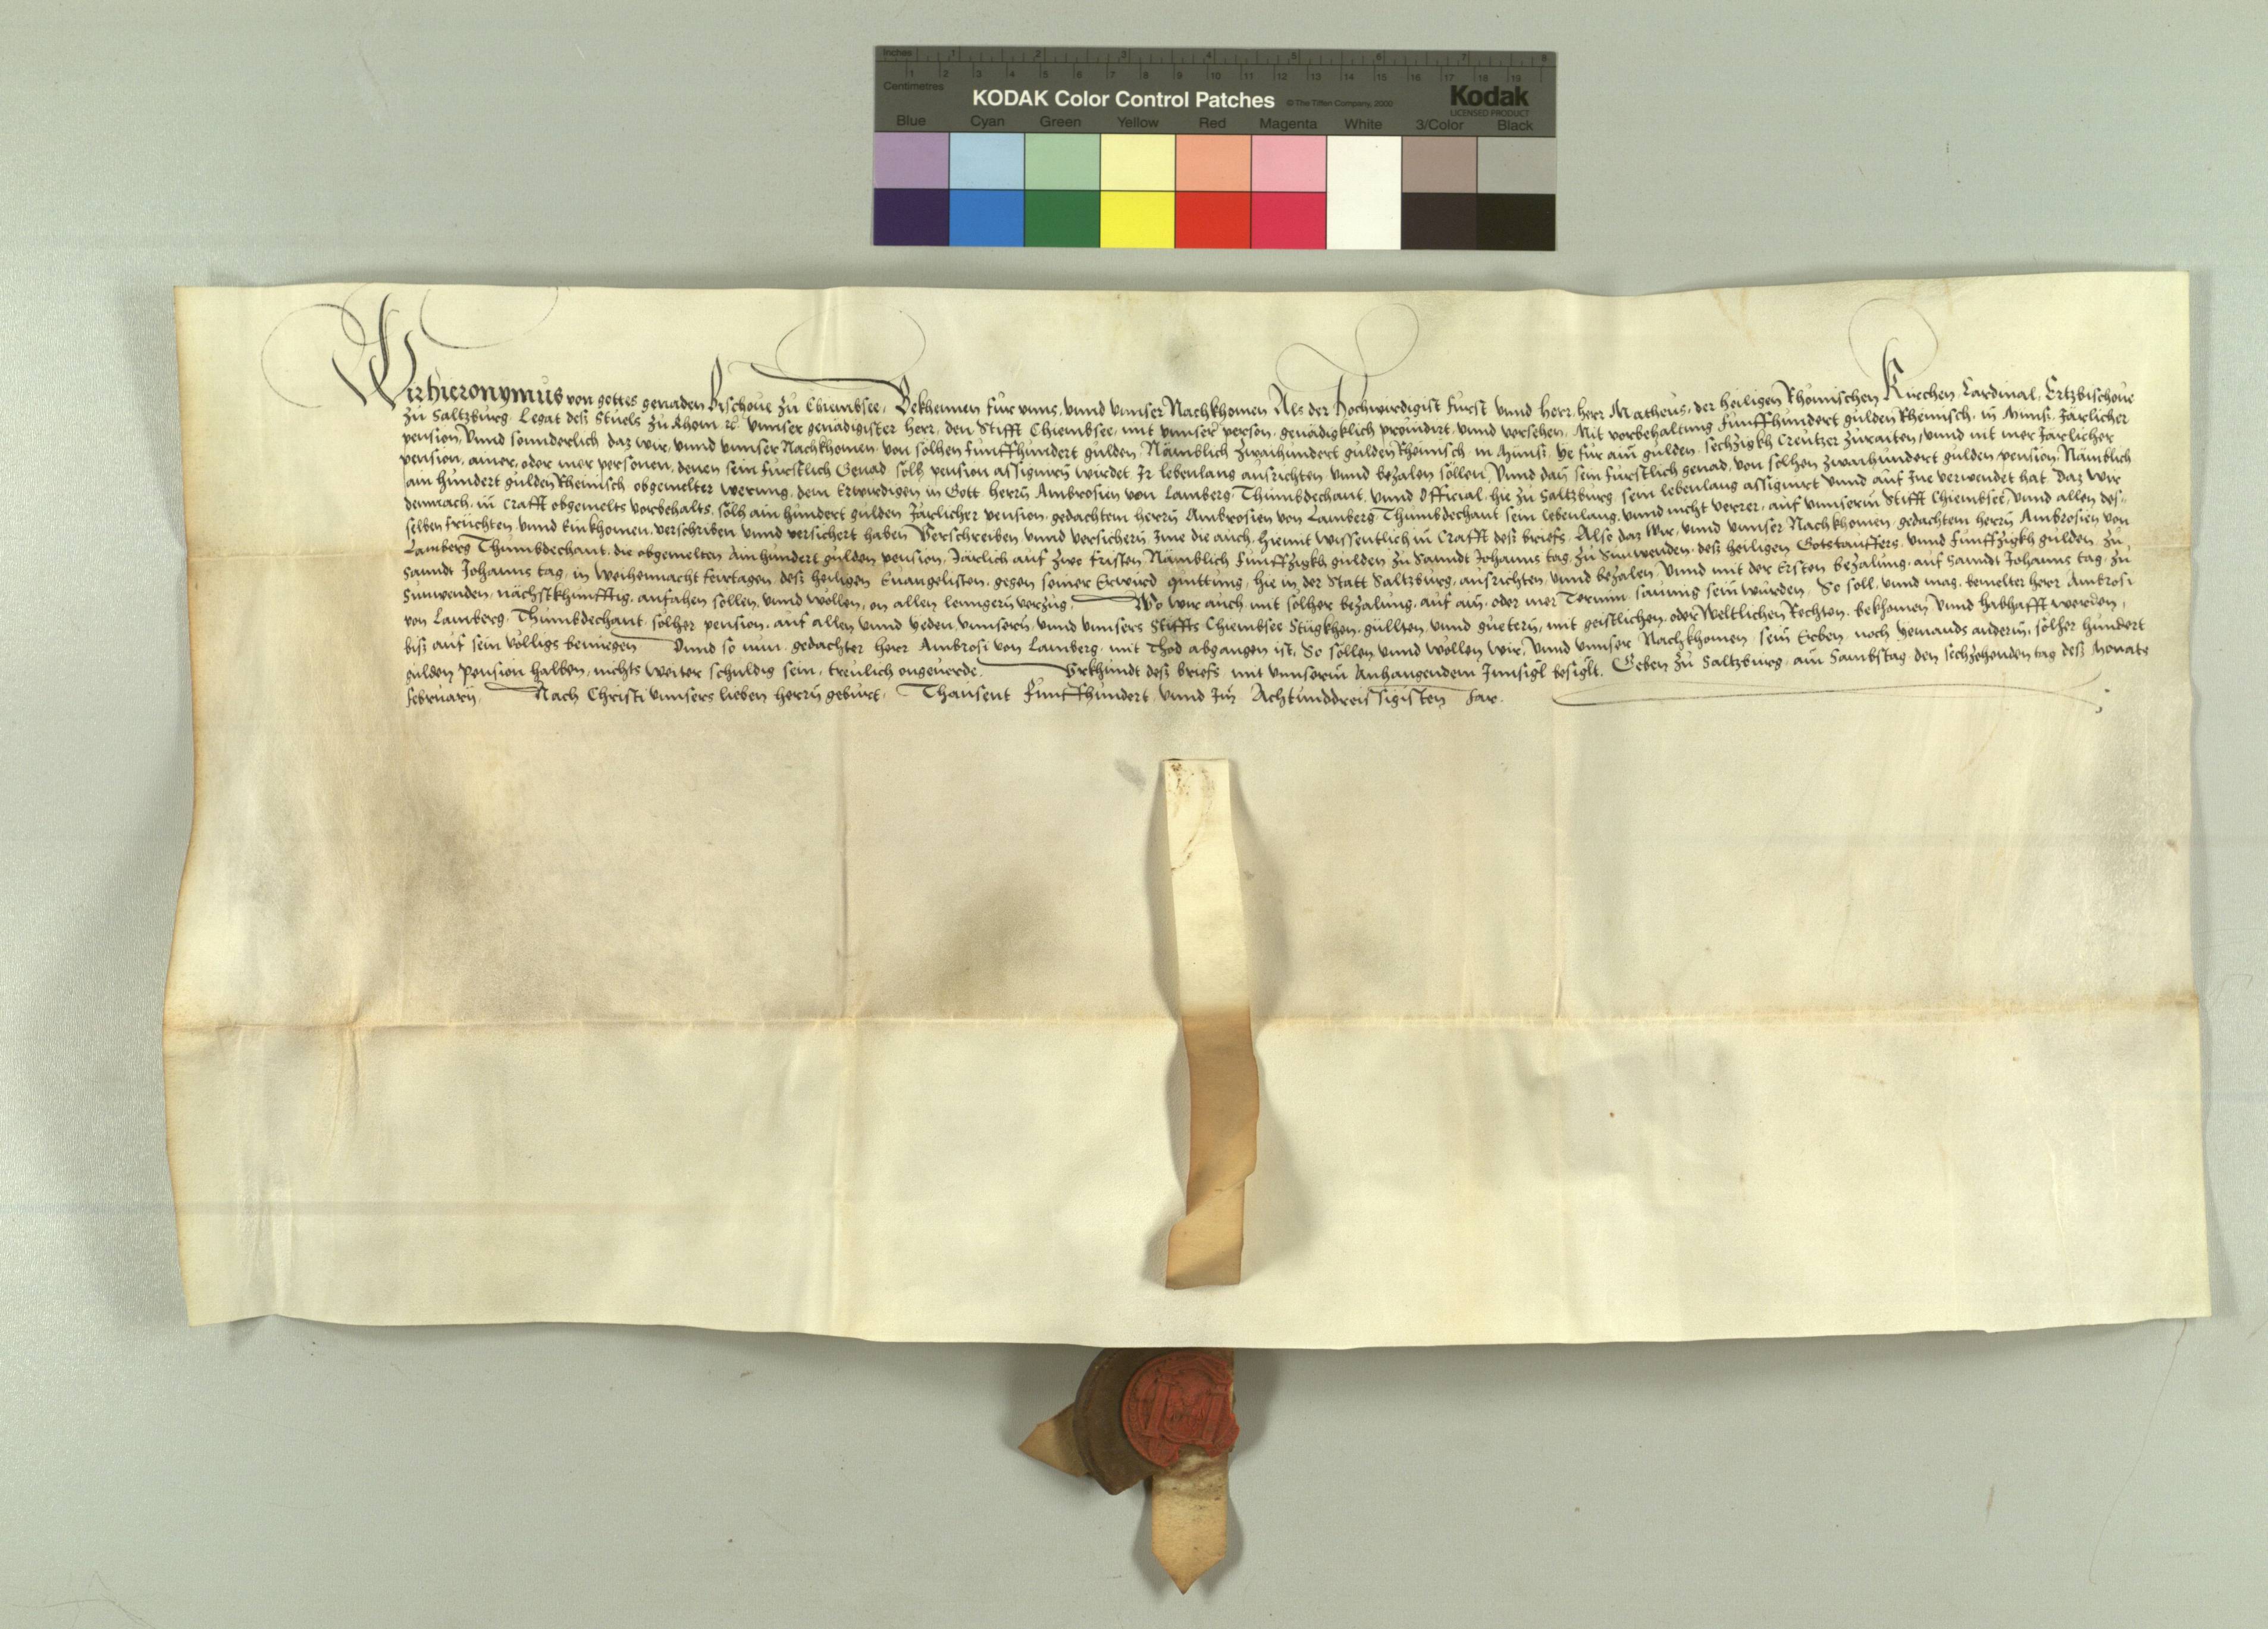 Inches 1 2 3 4 5 6 7 8
1 2 3 4 5 6 7 8 9 10 11 12 13 14 15 16 17 18 19
Centimetres
KODAK Color Control Patches © The Tiffen Company, 2000 Kodak
LICENSED PRODUCT
Blue Cyan Green Yellow Red Magenta White 3/Color Black
Wir hieronymus von gottes genaden Bischove zu Chiembsee, Bekhennen fur unns, unnd unnser Nachkhomen Als der Hochwirdigist Furst unnd herr, herr Matheus, der heiligen Rhömischen Kirchen, Cardinal, Ertzbischove
zu Saltzburg, Legat deß Stuels zu Rhom ꝛc. unnser genadigister herr, den Stifft Chiembsee, mit unnser person, genädigklich providirt, unnd versehen, Mit vorbehaltung Funffhundert gulden Rheinisch, in Munß, Järlicher
pension, Unnd sonnderlich daz wir, unnd unnser Nachkhomen, von solhen Funffhundert gulden, Nämblich zwaihundert gulden Rheinisch, in Munß, ye fur ain gulden, sechzigkh Creutzer zuraiten, unnd nit mer Järlicher
pension, ainer, oder mer personen, denen sein Furstlich Genad, solh pension assignirn wirdet, Ir lebenlang ausrichten, unnd bezalen sollen, Unnd dan sein furstlich genad, von solhen zwaihundert gulden pension, Nämblich
ain hundert gulden Rheinisch obgemelter werung, dem Erwirdigen in Gott herrn Ambrosien von Lamberg Thumbdechant, unnd Official, hie zu Saltzburg, sein lebenlang assignirt unnd auf Ine verwendet hat, Daz wir
demnach, in Crafft obgemelts vorbehalts, solh ain hundert gulden Järlicher pension, gedachtem herrn Ambrosien von Lamberg Thumbdechant sein lebenlang, unnd nicht verrer, auf unnserm Stifft Chiembsee, Unnd allen des-
selben fruchten, unnd Einkhomen, verschriben unnd versichert haben Verschreiben, unnd versichern, Ime die auch, hiemit wissentlich in Crafft deß briefs, Also daz Wir, unnd unnser Nachkhomen, gedachtem herrn Ambrosien von
Lamberg Thumbdechant, die obgemelten Ainhundert gulden pension, Järlich auf zwo Fristen, Nämblich Funffzigkh gulden zu Sanndt Johanns tag, zu Sunwenden, deß heiligen Gotstauffers, unnd Funffzigkh gulden, zu
Sanndt Johanns tag, in Weihennacht feirtagen, deß heiligen Evangelisten, gegen seiner Erwird quittung, hie in der Statt Saltzburg, ausrichten, unnd bezalen, Unnd mit der Ersten bezalung, auf Sanndt Johanns tag, zu
Sunwenden, nächstkhunfftig, anfahen sollen, unnd wollen, on allen lenngern verzug. Wo wir auch, mit solher bezalung, auf ain, oder mer Termin, saumig sein wurden, So soll, unnd mag, bemelter herr Ambrosi
von Lamberg, Thumbdechant, solher pension, auf allen unnd yeden, unnsern, unnd unnsers Stiffts Chiembsee Stugkhen, gullten, unnd guetern, mit geistlichen, oder Weltlichen Rechten, bekhomen, unnd habhafft werden,
biß auf sein völligs beniegen Unnd so nun, gedachter herr Ambrosi von Lamberg, mit Thod abgangen ist, So sollen, unnd wollen, wir, Unnd unnser Nachkhomen, sein Erben, noch yemands anderm, solher hundert
gulden Pension halben, nichts weiter schuldig sein, treulich ongeverde. Urkhundt deß briefs, mit unnserm Anhangendem Innsigl besiglt. Geben zu Saltzburg, am Sambstag den sechzehenden tag deß Monats
Februarij, Nach Christi unnsers lieben herrn geburt, Thausent Funffhundert, unnd Im Achtunddreissigisten Jar.